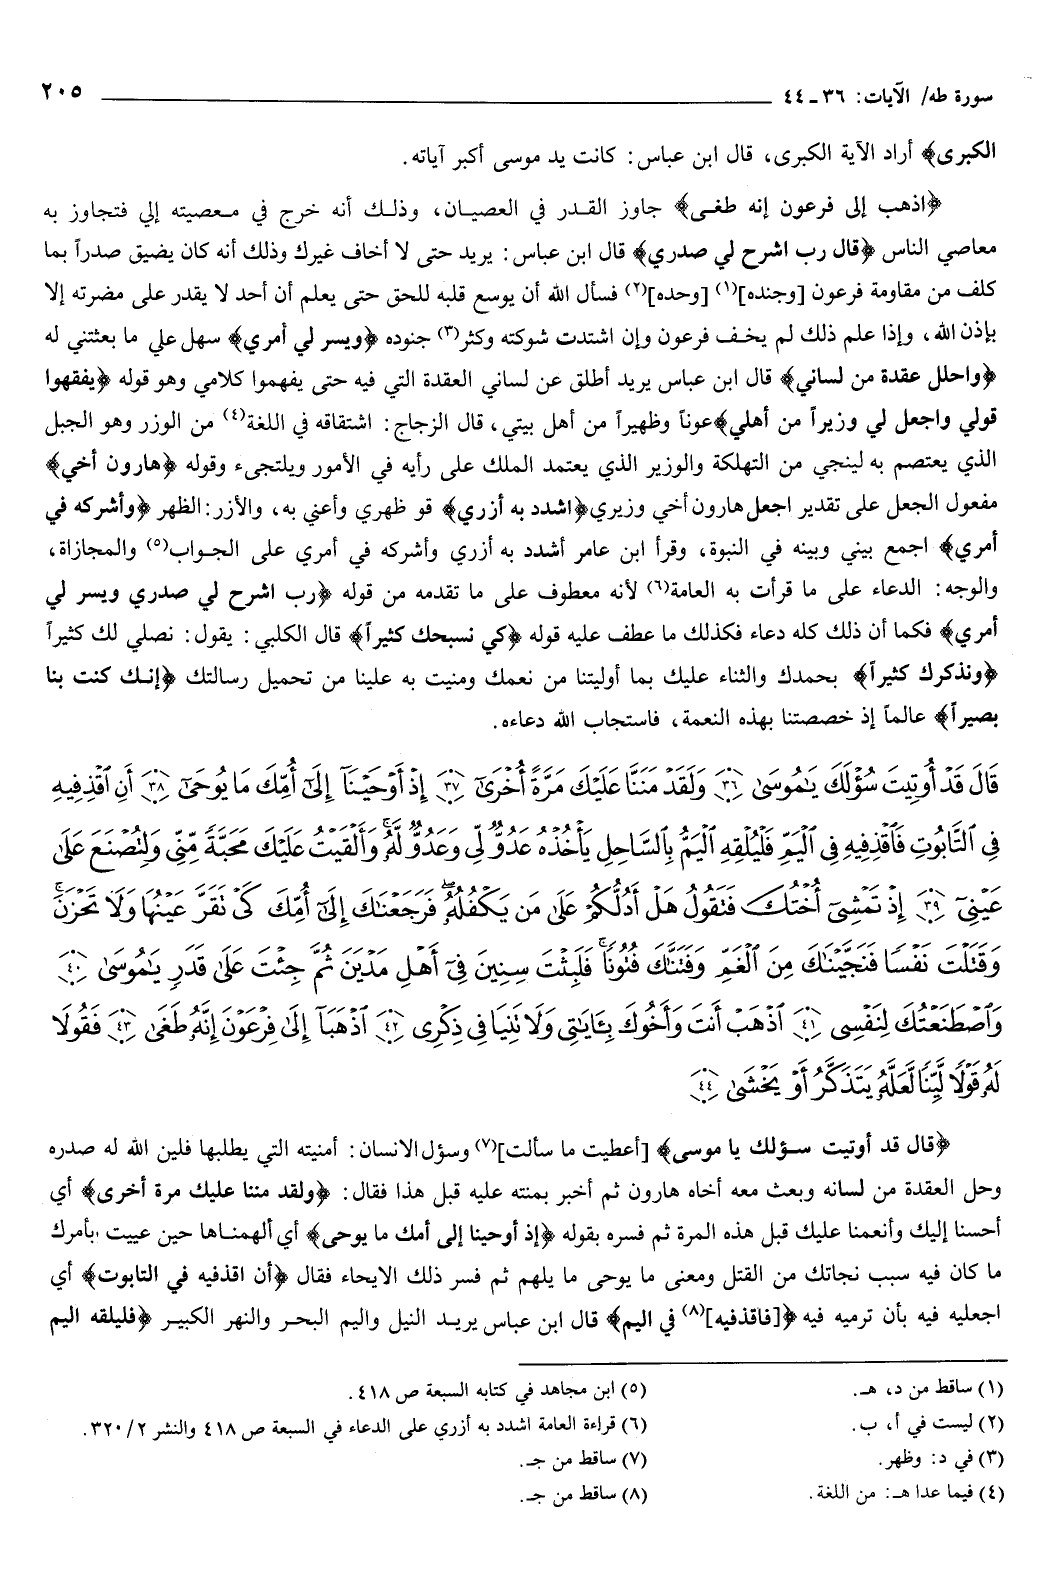 سورة طه/ الآيات: ٣٦ ـ ٤٤ ٢٠٥
الكبرى﴾ أراد الآية الكبرى، قال ابن عباس: كانت يد موسى أكبر آياته.
﴿اذهب إلى فرعون إنه طغى﴾ جاوز القدر في العصيان، وذلك أنه خرج في معصيته إلي فتجاوز به
معاصي الناس ﴿قال رب اشرح لي صدري﴾ قال ابن عباس: يريد حتى لا أخاف غيرك وذلك أنه كان يضيق صدراً بما
كلف من مقاومة فرعون [وجنده](١) [وحده](٢) فسأل الله أن يوسع قلبه للحق حتى يعلم أن أحد لا يقدر على مضرته إلا
بإذن الله، وإذا علم ذلك لم يخف فرعون وإن اشتدت شوكته وكثر(٣) جنوده ﴿ويسر لي أمري﴾ سهل علي ما بعثتني له
﴿واحلل عقدة من لساني﴾ قال ابن عباس يريد أطلق عن لساني العقدة التي فيه حتى يفهموا كلامي وهو قوله ﴿يفقهوا
قولي واجعل لي وزيراً من أهلي﴾عوناً وظهيراً من أهل بيتي، قال الزجاج: اشتقاقه في اللغة(٤) من الوزر وهو الجبل
الذي يعتصم به لينجي من التهلكة والوزير الذي يعتمد الملك على رأيه في الأمور ويلتجىء وقوله ﴿هارون أخي﴾
مفعول الجعل على تقدير اجعل هارون أخي وزيري﴿اشدد به أزري﴾ قو ظهري وأعني به، والأزر:الظهر ﴿وأشركه في
أمري﴾ اجمع بيني وبينه في النبوة، وقرأ ابن عامر أشدد به أزري وأشركه في أمري على الجواب(٥) والمجازاة،
والوجه: الدعاء على ما قرأت به العامة(٦) لأنه معطوف على ما تقدمه من قوله ﴿رب اشرح لي صدري ويسر لي
أمري﴾ فكما أن ذلك كله دعاء فكذلك ما عطف عليه قوله ﴿كي نسبحك كثيراً﴾ قال الكلبي: يقول: نصلي لك كثيراً
﴿ونذكرك كثيراً﴾ بحمدك والثناء عليك بما أوليتنا من نعمك ومنيت به علينا من تحميل رسالتك ﴿إنك كنت بنا
بصيراً﴾ عالماً إذ خصصتنا بهذه النعمة، فاستجاب الله دعاءه.
قَالَ قَدْ أُوتِيتَ سُؤْلَكَ يَـٰمُوسَىٰ ٣٦ وَلَقَدْ مَنَنَّا عَلَيْكَ مَرَّةً أُخْرَىٰٓ ٣٧ إِذْ أَوْحَيْنَآ إِلَىٰٓ أُمِّكَ مَا يُوحَىٰٓ ٣٨ أَنِ ٱقْذِفِيهِ
فِى ٱلتَّابُوتِ فَٱقْذِفِيهِ فِى ٱلْيَمِّ فَلْيُلْقِهِ ٱلْيَمُّ بِٱلسَّاحِلِ يَأْخُذْهُ عَدُوٌّ لِّى وَعَدُوٌّ لَّهُۥ وَأَلْقَيْتُ عَلَيْكَ مَحَبَّةً مِّنِّى وَلِتُصْنَعَ عَلَىٰ
عَيْنِىٓ ٣٩ إِذْ تَمْشِىٓ أُخْتُكَ فَتَقُولُ هَلْ أَدُلُّكُمْ عَلَىٰ مَن يَكْفُلُهُۥ فَرَجَعْنَـٰكَ إِلَىٰٓ أُمِّكَ كَىْ تَقَرَّ عَيْنُهَا وَلَا تَحْزَنَ
وَقَتَلْتَ نَفْسًا فَنَجَّيْنَـٰكَ مِنَ ٱلْغَمِّ وَفَتَنَّـٰكَ فُتُونًا فَلَبِثْتَ سِنِينَ فِىٓ أَهْلِ مَدْيَنَ ثُمَّ جِئْتَ عَلَىٰ قَدَرٍ يَـٰمُوسَىٰ ٤٠
وَٱصْطَنَعْتُكَ لِنَفْسِى ٤١ ٱذْهَبْ أَنتَ وَأَخُوكَ بِـَٔايَـٰتِى وَلَا تَنِيَا فِى ذِكْرِى ٤٢ ٱذْهَبَآ إِلَىٰ فِرْعَوْنَ إِنَّهُۥ طَغَىٰ ٤٣ فَقُولَا
لَهُۥ قَوْلًا لَّيِّنًا لَّعَلَّهُۥ يَتَذَكَّرُ أَوْ يَخْشَىٰ ٤٤
﴿قال قد أوتيت سؤلك يا موسى﴾ [أعطيت ما سألت](٧) وسؤل الانسان: أمنيته التي يطلبها فلين الله له صدره
وحل العقدة من لسانه وبعث معه أخاه هارون ثم أخبر بمنته عليه قبل هذا فقال: ﴿ولقد مننا عليك مرة أخرى﴾ أي
أحسنا إليك وأنعمنا عليك قبل هذه المرة ثم فسره بقوله ﴿إذ أوحينا إلى أمك ما يوحى﴾ أي ألهمناها حين عييت بأمرك
ما كان فيه سبب نجاتك من القتل ومعنى ما يوحى ما يلهم ثم فسر ذلك الايحاء فقال ﴿أن اقذفيه في التابوت﴾ أي
اجعليه فيه بأن ترميه فيه ﴿[فاقذفيه](٨) في اليم﴾ قال ابن عباس يريد النيل واليم البحر والنهر الكبير ﴿فليلقه اليم
(١) ساقط من د، هـ.
(٢) ليست في أ، ب.
(٣) في د: وظهر.
(٤) فيما عدا هـ: من اللغة.
(٥) ابن مجاهد في كتابه السبعة ص ٤١٨.
(٦) قراءة العامة اشدد به أزري على الدعاء في السبعة ص ٤١٨ والنشر ٣٢٠/٢.
(٧) ساقط من جـ.
(٨) ساقط من جـ.